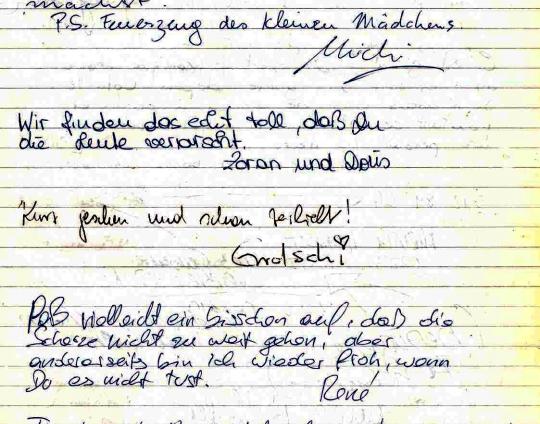 macht.
P.S. Feuerzeug des kleinen Mädchens
Michi
Wir finden das echt toll, daß Du
die Leute verarscht.
Zoran und Doris
Kurz gesehen und schon verliebt!
Grotschi
Paß vielleicht ein bisschen auf, daß die
Scherze nicht zu weit gehen, aber
andererseits bin ich wieder froh, wenn
Du es nicht tust.
René